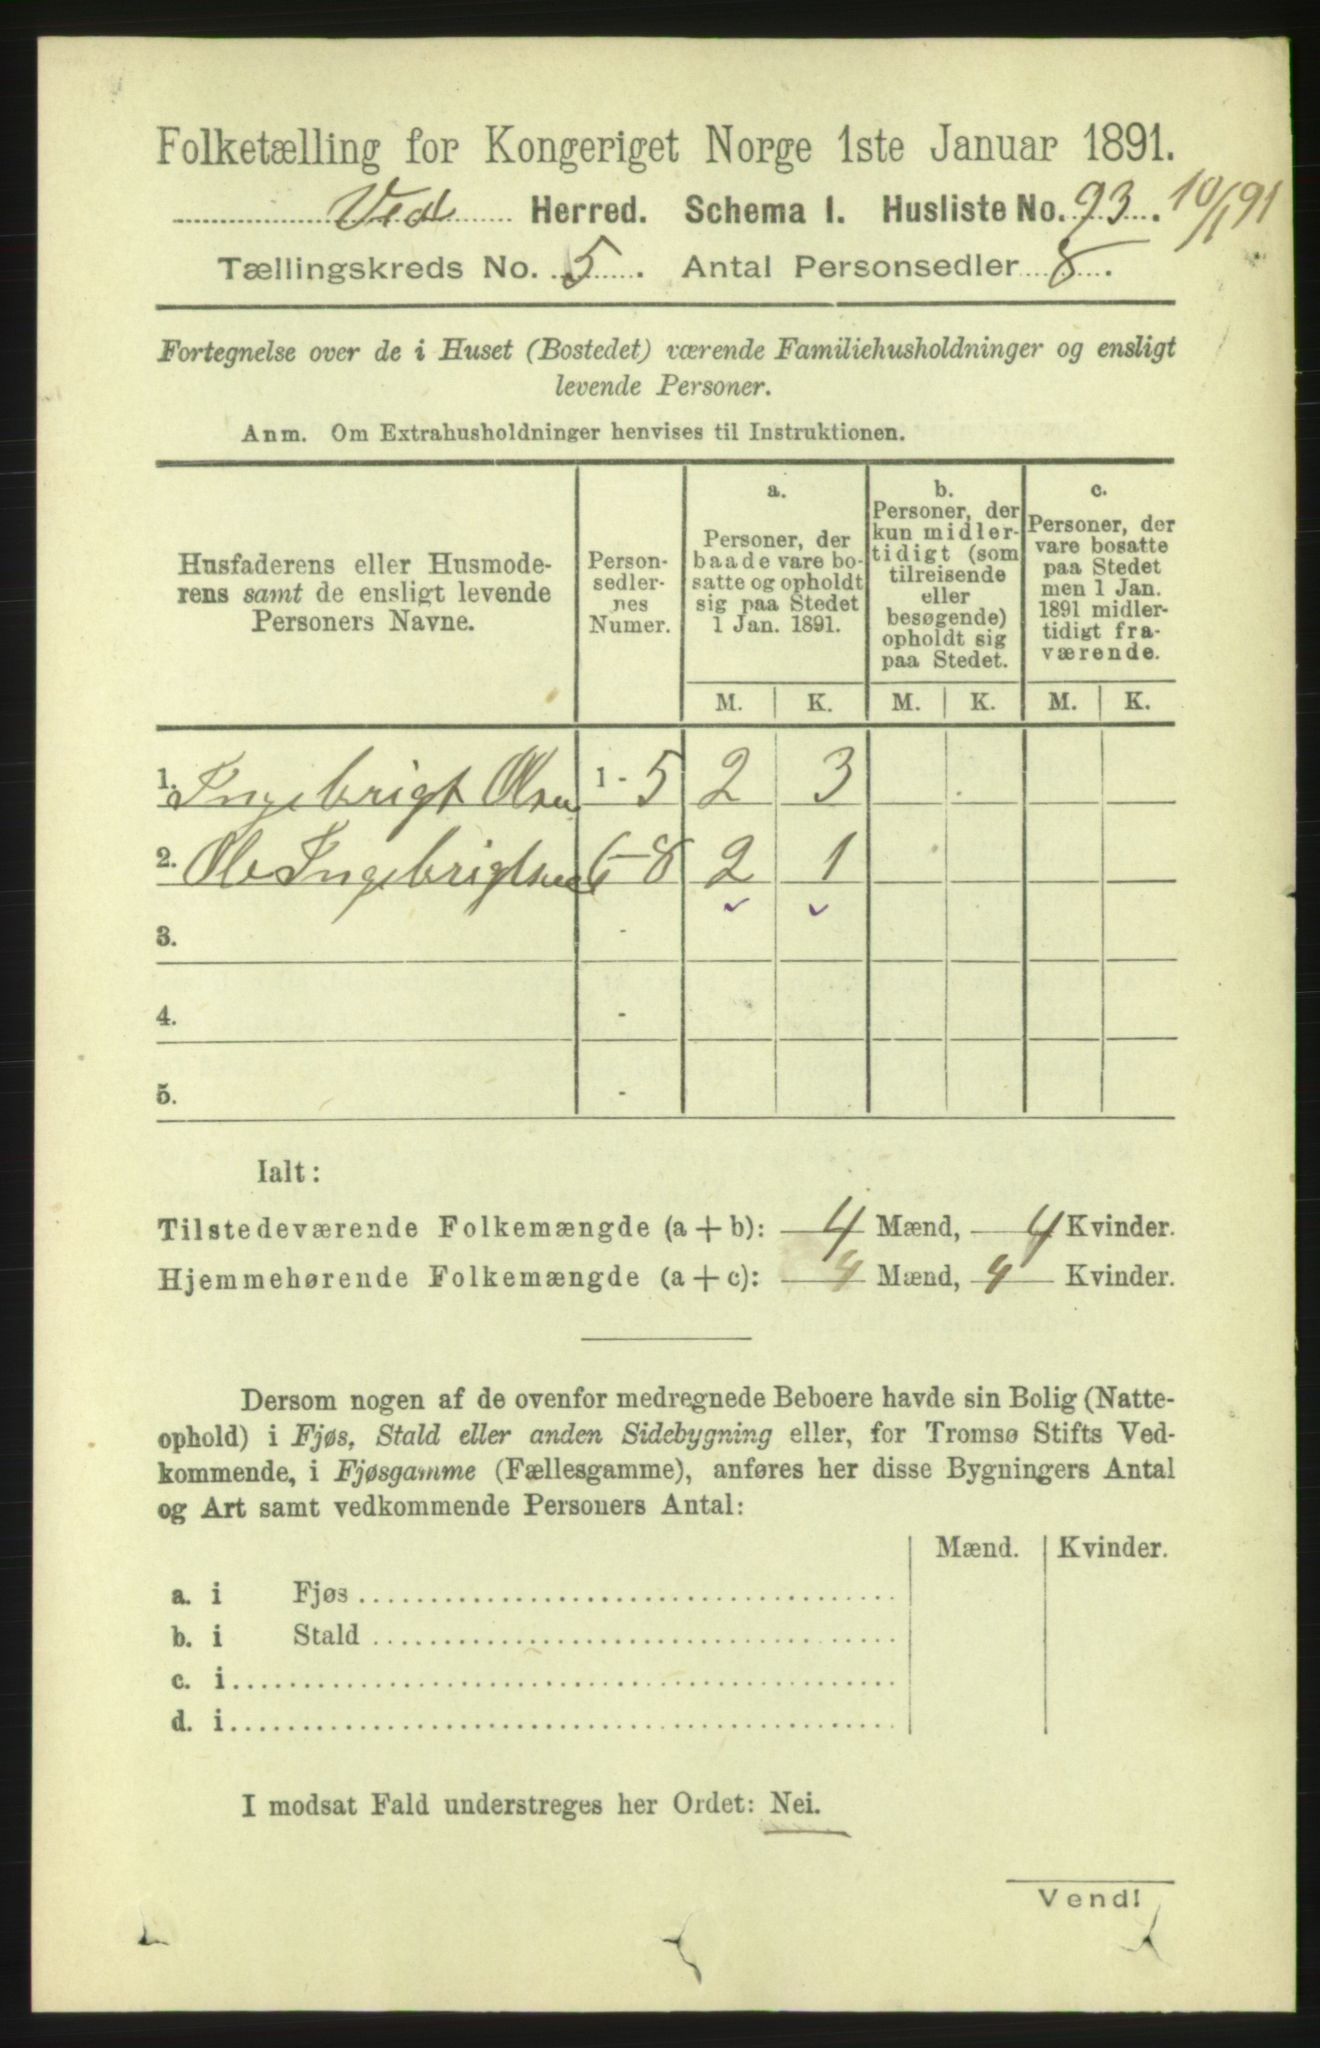 Folketælling for Kongeriget Norge 1ste Januar 1891.
Ved Herred. Schema I. Husliste No. 93. 10/1 91
Tællingskreds No. 5. Antal Personsedler 8.
Fortegnelse over de i Huset (Bostedet) værende Familiehusholdninger og ensligt
levende Personer.
Anm. Om Extrahusholdninger henvises til Instruktionen.
Husfaderens eller Husmode-
rens samt de ensligt levende
Personers Navne.
Person-
sedler-
nes
Numer.
a.
Personer, der
baade vare bo-
satte og opholdt
sig paa Stedet
1 Jan. 1891.
b.
Personer, der
kun midler-
tidigt (som
tilreisende
eller
besøgende)
opholdt sig
paa Stedet.
c.
Personer, der
vare bosatte
paa Stedet
men 1 Jan.
1891 midler-
tidigt fra-
værende.
M. K. M. K. M. K.
1. Ingebrigt Olsen 1 - 5 2 3
2. Ole Ingebrigtsen 6-8 2 1
3. -
4. -
5. -
Ialt:
Tilstedeværende Folkemængde (a + b): 4 Mænd, 4 Kvinder.
Hjemmehørende Folkemængde (a + c): 4 Mænd, 4 Kvinder.
Dersom nogen af de ovenfor medregnede Beboere havde sin Bolig (Natte-
ophold) i Fjøs, Stald eller anden Sidebygning eller, for Tromsø Stifts Ved-
kommende, i Fjøsgamme (Fællesgamme), anføres her disse Bygningers Antal
og Art samt vedkommende Personers Antal:
Mænd. Kvinder.
a. i Fjøs
b. i Stald
c. i
d. i
I modsat Fald understreges her Ordet: Nei.
Vend!